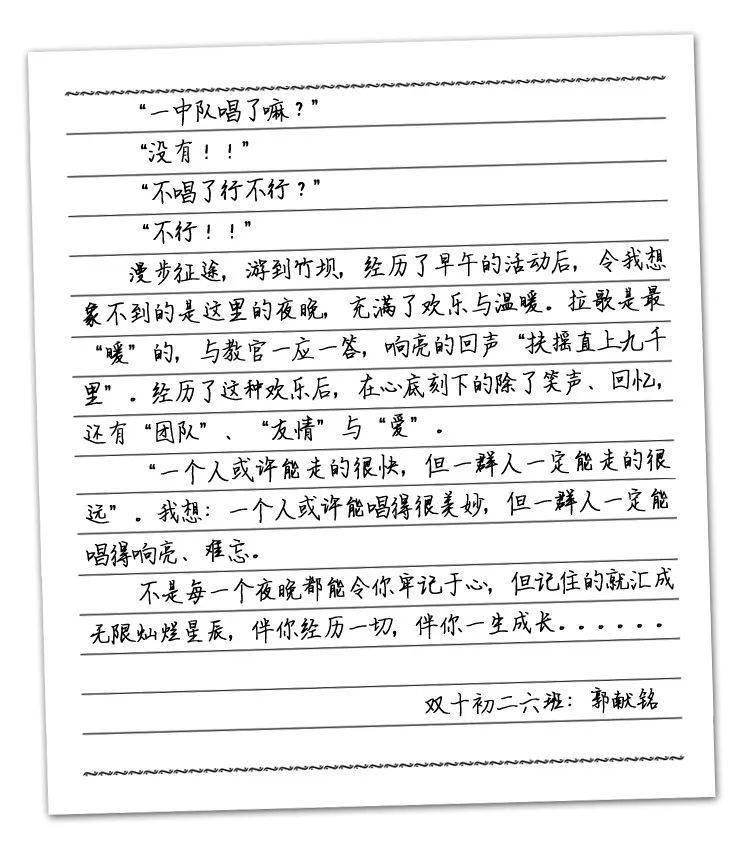 “一中队唱了嘛？”
“没有！！”
“不唱了行不行？”
“不行！！”
漫步征途，游到竹坝，经历了早午的活动后，令我想
象不到的是这里的夜晚，充满了欢乐与温暖。拉歌是最
“暖”的，与教官一应一答，响亮的回声“扶摇直上九千
里”。经历了这种欢乐后，在心底刻下的除了笑声、回忆，
还有“团队”、“友情”与“爱”。
“一个人或许能走的很快，但一群人一定能走的很
远”。我想：一个人或许能唱得很美妙，但一群人一定能
唱得响亮、难忘。
不是每一个夜晚都能令你牢记于心，但记住的就汇成
无限灿烂星辰，伴你经历一切，伴你一生成长。。。。。。
双十初二六班：郭献铭